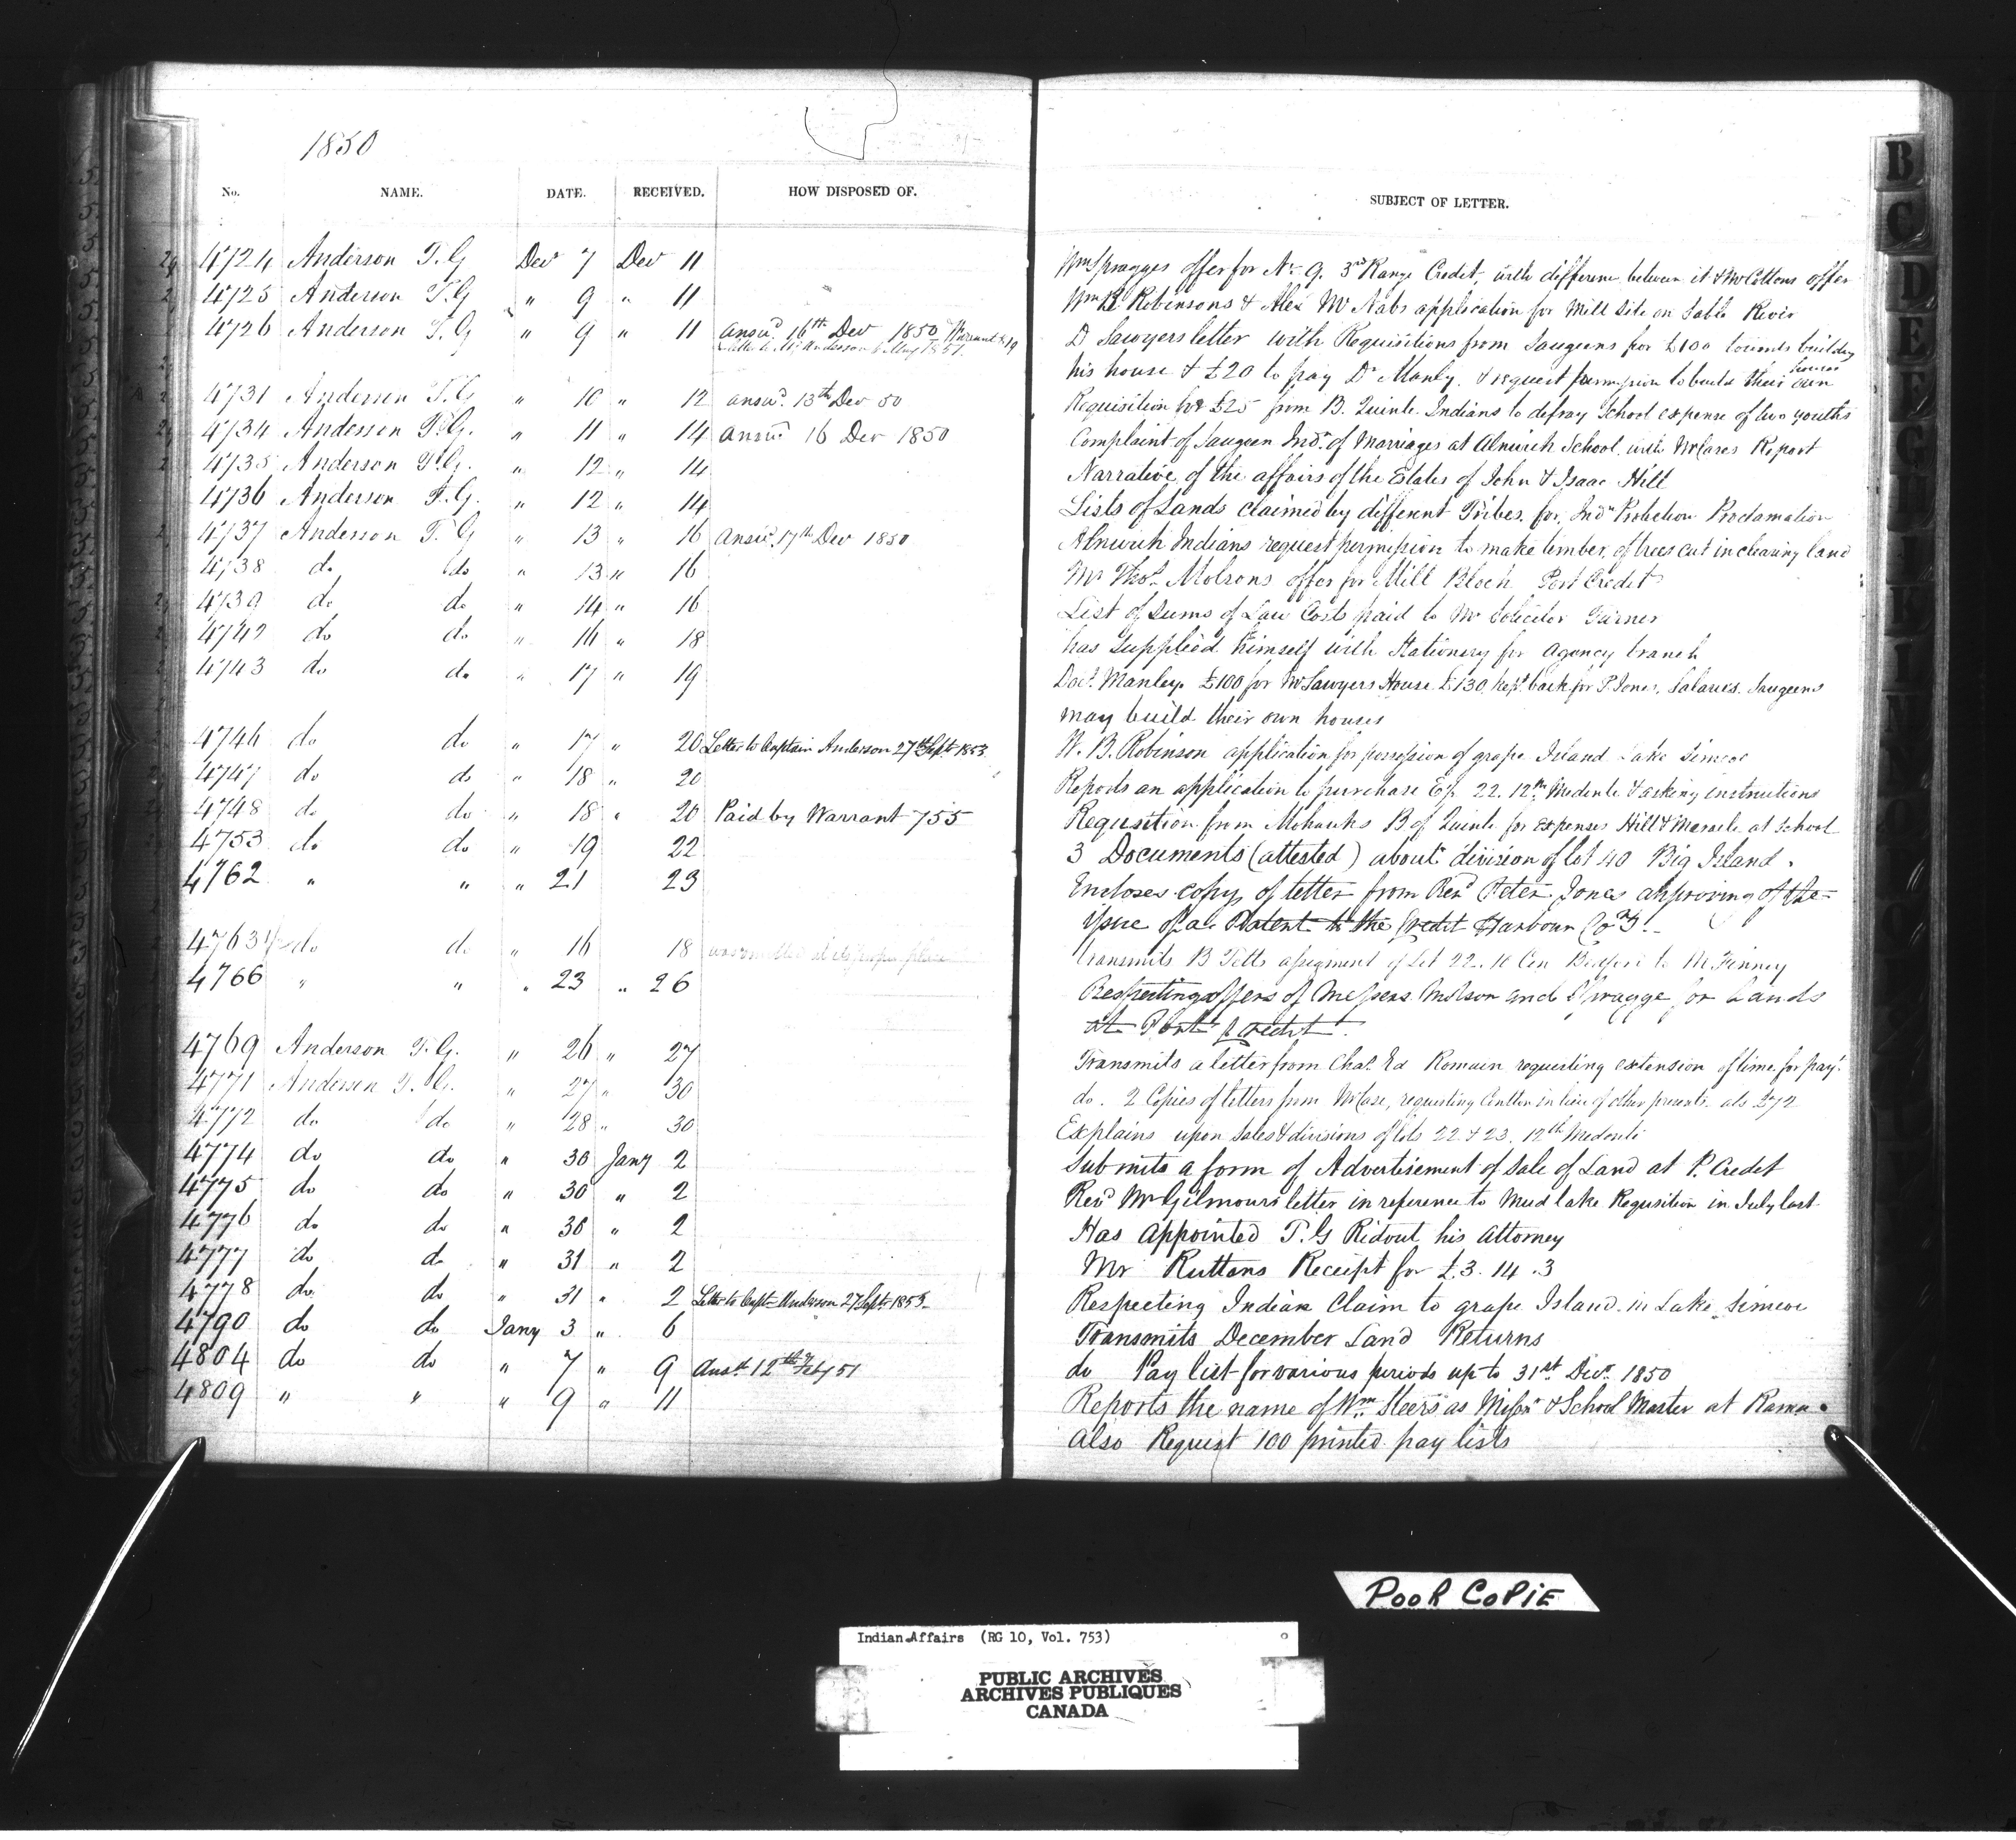 1850
No. NAME. DATE. RECEIVED. HOW DISPOSED OF. SUBJECT OF LETTER.
4724 Anderson T.G Decr 7 Decr 11 Wm Spragges offer for No. 9. 3rd Range Credit, with difference between it & Mr Cottons offer
4725 Anderson T.G " 9 " 11 Wm B Robinsons & Alex McNabs application for Mill Site on Sable River
4726 Anderson T.G " 9 " 11 Answd 16th Decr 1850 Warrant 819 D Sawyers letter with Requisitions from Saugeens for £100 towards building
Letter to Mr Anderson 6 May 1851. his house & £20 to pay Dr Manly. & request permission to build their own houses
4731 Anderson T.G " 10 " 12 Answd. 13th Decr 50 Requisition for £25 from B. Quinte Indians to defray School expense of two youths
4734 Anderson T.G. " 11 " 14 Answd 16 Decr 1850 Complaint of Saugeen Inds. of Marriages at Alnwick School, with Mr Cases Report
4735 Anderson T.G. " 12 " 14 Narrative of the affairs of the Estates of John & Isaac Hill
4736 Anderson T.G. " 12 " 14 Lists of Lands claimed by different Tribes. for Indn Protection Proclamation
4737 Anderson T.G " 13 " 16 Answd. 17th Decr 1850 Alnwick Indians request permission to make timber, of trees cut in clearing land
4738 do do " 13 " 16 Mr Thos. Molsons offer for Mill Block Port Credit
4739 do do " 14 " 16 List of Sums of Law Costs paid to Mr Solicitor Turner
4742 do do " 16 " 18 has supplied himself with Stationery for Agency branch
4743 do do " 17 " 19 Doct. Manley. £100 for Mr Sawyers House. £130 kept back for P. Jones, Salaries. Saugeens
may build their own houses
4746 do do " 17 " 20 Letter to Captain Anderson 27th Sept. 1853. W. B. Robinson application for possession of grape Island Lake Simcoe
4747 do do " 18 " 20 Reports an application to purchase 22. 12th Medonte & asking instructions
4748 do do " 18 " 20 Paid by Warrant 755 Requisition from Mohawks B of Quinte for expenses Hill & Maracle at School
4753 do do " 19 22 3 Documents (attested) about division of lot 40 Big Island.
4762 " " " 21 23 Encloses copy of letter from Revd Peter Jones approving of the
issue of a Patent to the Credit Harbour Coy.
4763½ do do " 16 18 Transmits B Tetts assignment of Lot 22. 10 Con Bedford to M. Kenney
4766 " " " 23 " 26 Respecting offers of Messrs Molson and Spragge for Lands
at Port Credit.
4769 Anderson T.G. " 26 " 27 Transmits a letter from Chas. Ed Romain requesting extension of time for payt.
4771 Anderson T.G. " 27 " 30 do. 2 Copies of letters from Mr Case, requesting in lieu of other presents.
4772 do do " 28 " 30 Explains upon Sales & divisions of lots 22 & 23. 12th Medonte
4774 do do " 30 Jany 2 Submits a form of Advertisement of Sale of Land at P. Credit
4775 do do " 30 " 2 Revd Mr Gilmours letter in reference to Mud lake Requisition in July last
4776 do do " 30 " 2 Has Appointed T.G Ridout his Attorney
4777 do do " 31 " 2 Mr Ruttans Receipt for £3.14.3
4778 do do " 31 " 2 Letter to Captn Anderson 27 Sept. 1853. Respecting Indian Claim to grape Island in Lake Simcoe
4790 do do Jany 3 " 6 Transmits December Land Returns
4804 do do " 7 " 9 Ansd. 12th Feby 51 do Pay list for various periods up to 31st Decr 1850
4809 " " " 9 " 11 Reports the name of Wm Steers as Missy & School Master at Rama.
Also Request 100 printed pay lists
B
C
D
E
F
G
H
I
K
POOR COPIE
Indian Affairs (RG 10, Vol. 753)
PUBLIC ARCHIVES
ARCHIVES PUBLIQUES
CANADA